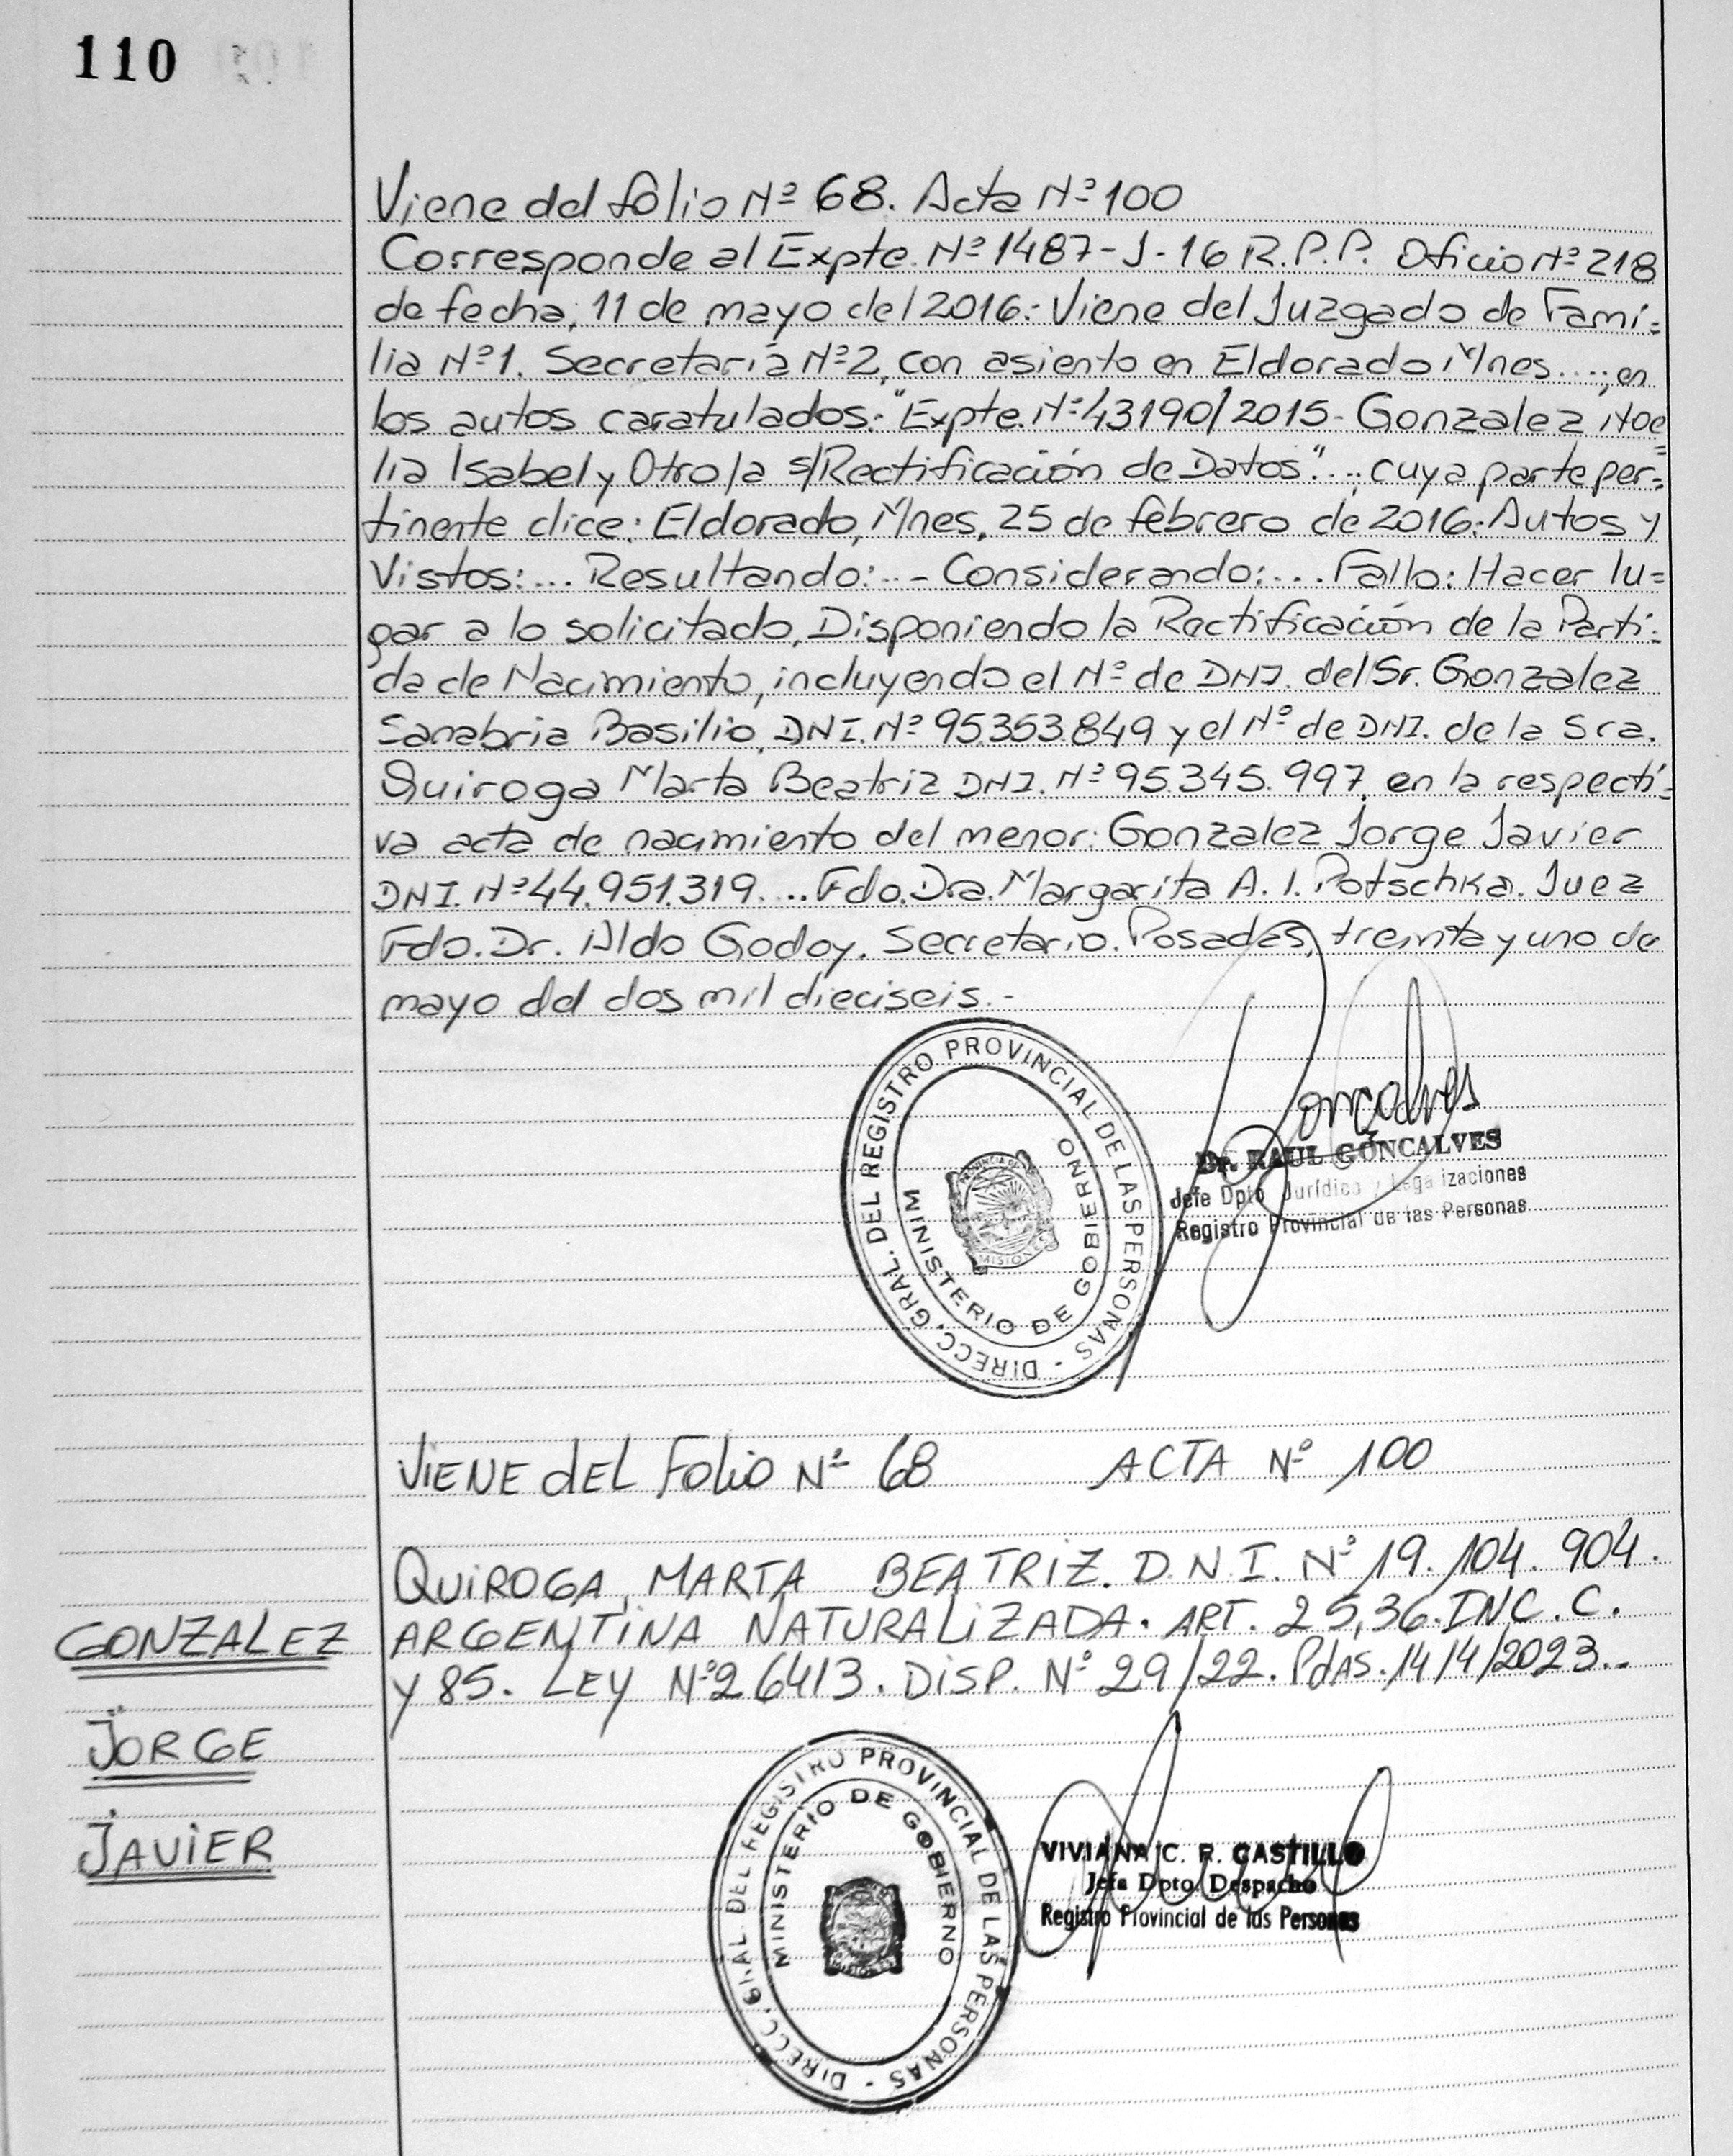 110
Viene del folio Nº 68. Acta Nº 100
Corresponde al Expte. Nº 1487-J-16 R.P.P. Oficio Nº 218
de fecha, 11 de mayo del 2016: Viene del Juzgado de Fami=
lia Nº 1. Secretaría Nº 2, con asiento en Eldorado Mnes....; en
los autos caratulados: "Expte. Nº 43190/2015- Gonzalez Noe=
lia Isabel y Otro/a s/Rectificación de Datos"...; cuya parte per=
tinente dice: Eldorado, Mnes, 25 de febrero de 2016: Autos y
Vistos:... Resultando:... Considerando:... Fallo: Hacer lu=
gar a lo solicitado, Disponiendo la Rectificación de la Parti=
da de Nacimiento, incluyendo el Nº de DNI. del Sr. Gonzalez
Sanabria Basilio, DNI. Nº 95.353.849 y el Nº de DNI. de la Sra.
Quiroga Marta Beatriz DNI. Nº 95.345.997, en la respecti=
va acta de nacimiento del menor: Gonzalez Jorge Javier
DNI. Nº 44.951.319.... Fdo. Dra. Margarita A. I. Potschka. Juez
Fdo. Dr. Aldo Godoy. Secretario. Posadas, treinta y uno de
mayo del dos mil dieciseis.-
DIRECC. GRAL. DEL REGISTRO PROVINCIAL DE LAS PERSONAS -
MINISTERIO DE GOBIERNO
PROVINCIA DE
MISIONES
Goncalves
Dr. RAUL GONCALVES
Jefe Dpto Jurídico y Legalizaciones
Registro Provincial de las Personas
VIENE dEL Folio Nº 68 ACTA Nº 100
QUIROGA, MARTA BEATRIZ. D.N.I. Nº 19.104.904.
ARGENTINA NATURALIZADA. ART. 25,36.INC.C.
y 85. LEY Nº 26413. DISP. Nº 29/22. PdAS. 14/4/2023..
GONZALEZ
JORGE
JAVIER
DIRECC. GRAL DEL REGISTRO PROVINCIAL DE LAS PERSONAS -
MINISTERIO DE GOBIERNO
MISIONES
VIVIANA C. R. CASTILLO
Jefa Dpto Despacho
Registro Provincial de las Personas